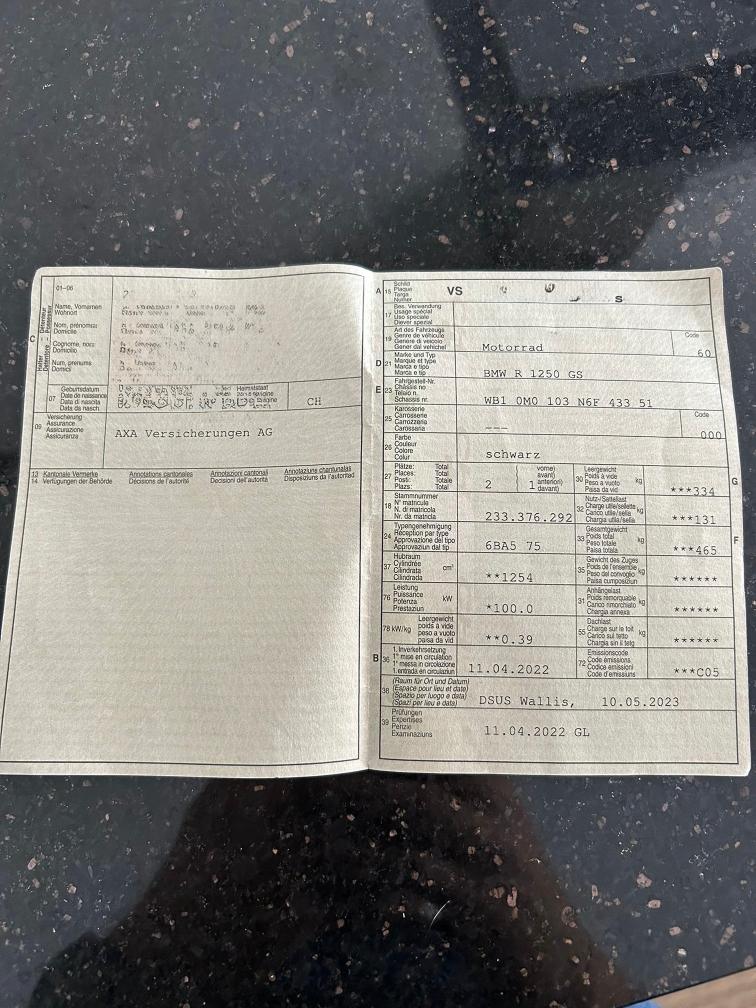 01-06
C
Halter
Détenteur
Detentore
Possessur
Name, Vornamen
Wohnort
Nom, prénoms
Domicile
Cognome, nomi
Domicilio
Num, prenums
Domicil
07
Geburtsdatum
Date de naissance
Data di nascita
Data da nasch.
Heimatstaat
CH
09
Versicherung
Assurance
Assicurazione
Assicuranza
AXA Versicherungen AG
13 Kantonale Vermerke Annotations cantonales Annotazioni cantonali Annotaziuns chantunalas
14 Verfügungen der Behörde Décisions de l'autorité Decisioni dell'autorità Disposiziuns da l'autoritad
A 15
Schild
Plaque
Targa
Numer
VS
S
17
Bes. Verwendung
Usage spécial
Uso speciale
Diever spezial
19
Art des Fahrzeugs
Genre de véhicule
Genere di veicolo
Gener dal vehichel
Motorrad
Code
60
D 21
Marke und Typ
Marque et type
Marca e tipo
Marca e tip
BMW R 1250 GS
E 23
Fahrgestell-Nr.
Châssis no
Telaio n.
Schassis nr.
WB1 0M0 103 N6F 433 51
25
Karosserie
Carrosserie
Carrozzeria
Carossaria
---
Code
000
26
Farbe
Couleur
Colore
Colur
schwarz
27
Plätze: Total
Places: Total
Posti: Totale
Plazs: Total
2
vorne)
avant)
anteriori)
davant)
1
30
Leergewicht
Poids à vide
Peso a vuoto
Paisa da vid
kg
***334
G
18
Stammnummer
N° matricule
N. di matricola
Nr. da matricla
233.376.292
32
Nutz-/Sattellast
Charge utile/sellette
Carico utile/sella
Chargia utila/sella
kg
***131
24
Typengenehmigung
Réception par type
Approvazione del tipo
Approvaziun dal tip
6BA5 75
33
Gesamtgewicht
Poids total
Peso totale
Paisa totala
kg
***465
F
37
Hubraum
Cylindrée
Cilindrata
Cilindrada
cm³
**1254
35
Gewicht des Zuges
Poids de l'ensemble
Peso del convoglio
Paisa cumposiziun
kg
******
76
Leistung
Puissance
Potenza
Prestaziun
kW
*100.0
31
Anhängelast
Poids remorquable
Carico rimorchiato
Chargia annexa
kg
******
78 kW/kg
Leergewicht
poids à vide
peso a vuoto
paisa da vid
**0.39
55
Dachlast
Charge sur le toit
Carico sul tetto
Chargia sin il tetg
kg
******
B 36
1. Inverkehrsetzung
1re mise en circulation
1a messa in circolazione
1. entrada en circulaziun
11.04.2022
72
Emissionscode
Code émissions
Codice emissioni
Code d'emissiuns
***C05
38
(Raum für Ort und Datum)
(Espace pour lieu et date)
(Spazio per luogo e data)
(Spazi per lieu e data)
DSUS Wallis, 10.05.2023
39
Prüfungen
Expertises
Perizie
Examinaziuns
11.04.2022 GL